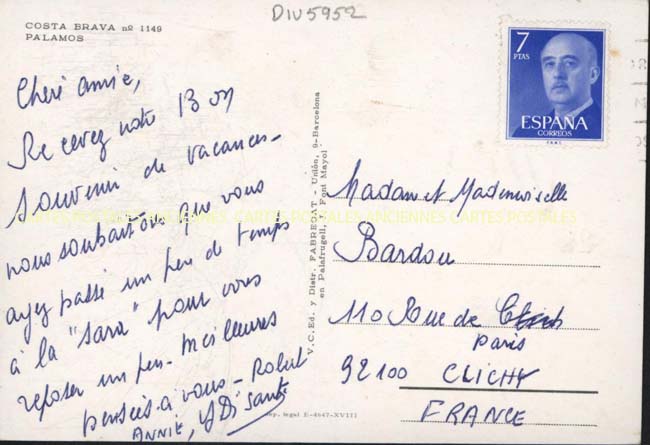 DIV5952
COSTA BRAVA nº 1149
PALAMOS
Chère annie,
Recevez notre Bon
souvenir de vacances -
nous souhaitons que vous
ayez passé un peu de temps
à la "Sara" pour vous
reposer un peu - meilleures
pensées à vous - Robert
ANNIE,
V.C. Ed. y Distr. FABREGAT - Unión, 9-Barcelona
en Palafrugell, Font Mayol
Dep. legal E-4647-XVIII
7
PTAS
ESPAÑA
CORREOS
F.N.M.T.
Madam et Mademoiselle
Bardou
110 Rue de
Paris
92100 CLICHY
FRANCE
CARTES POSTALES ANCIENNES CARTES POSTALES